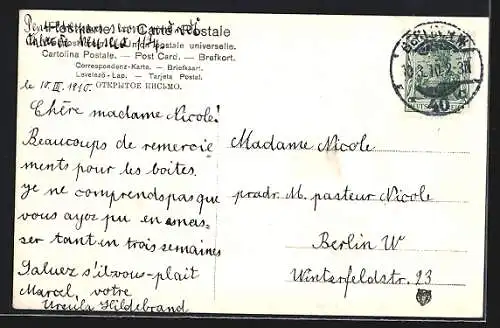 Postkarte — Carte Postale
postale universelle.
Cartolina Postale. — Post Card. — Brefkort.
Correspondenz-Karte. — Briefkaart.
Levelező-Lap. — Tarjeta Postal.
ОТКРЫТОЕ ПИСЬМО.
le 10. III. 1910.
Chère madame Nicole!
Beaucoups de remercie
ments pour les boites.
je ne comprends pas que
vous ayez pu en amas-
ser tant en trois semaines
Saluez s'il vous-plait
Marcel, votre
Ursula Hildebrand
BERLIN W
10.3.10.
40
Madame Nicole
pradr. M. pasteur Nicole
Berlin W
Winterfeldstr. 23